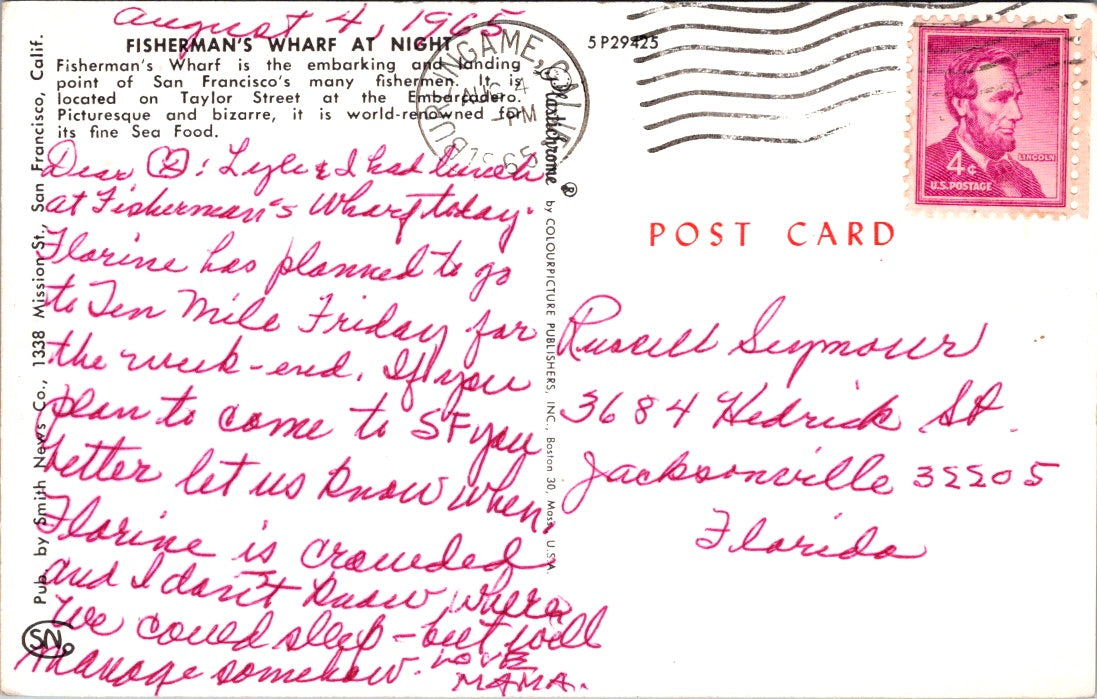 August 4, 1965
FISHERMAN'S WHARF AT NIGHT
Fisherman's Wharf is the embarking and landing
point of San Francisco's many fishermen. It is
located on Taylor Street at the Embarcadero.
Picturesque and bizarre, it is world-renowned for
its fine Sea Food.
Dear : Lyle & I had lunch
at Fisherman's Wharf today.
Florine has planned to go
to Ten Mile Friday for
the week-end. If you
plan to come to SF you
better let us know when.
Florine is crowded
and I don't know where
we could sleep - but will
manage somehow. LOVE
MAMA.
Pub. by Smith News Co., 1338 Mission St., San Francisco, Calif.
SN
Plastichrome ® by COLOURPICTURE PUBLISHERS, INC., Boston 30, Mass. U.S.A.
5P29425
BURLINGAME, CALIF.
AUG 4
PM
1965
4¢
LINCOLN
U.S. POSTAGE
POST CARD
Russell Seymour
3684 Hedrick St.
Jacksonville 32205
Florida